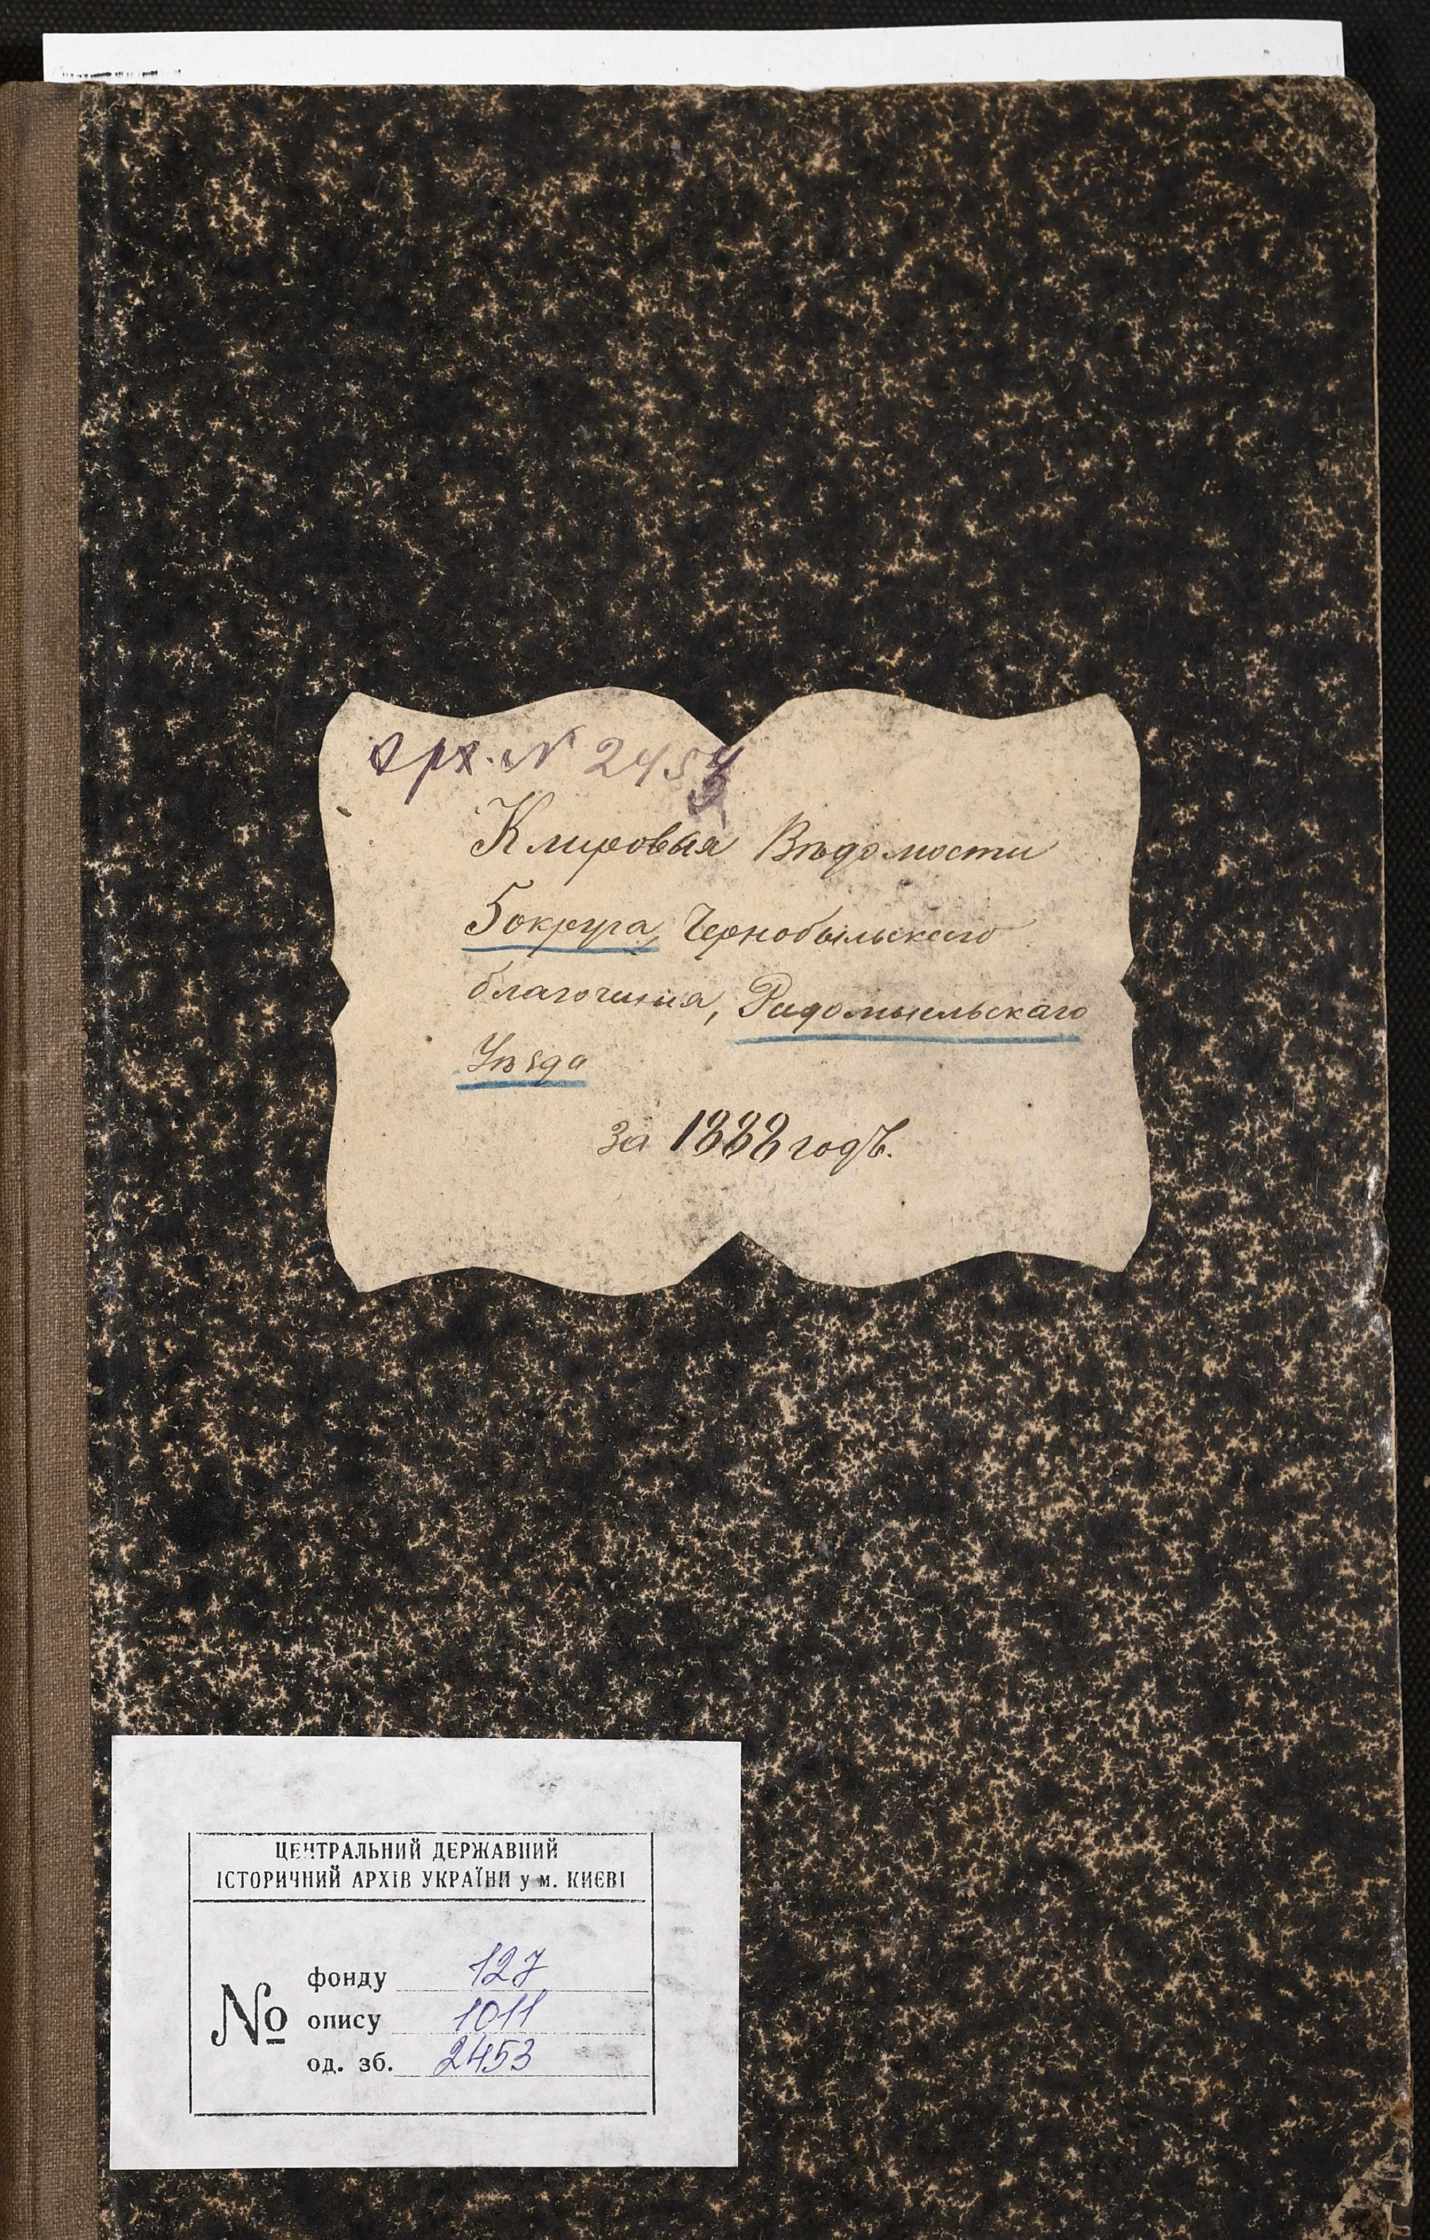 арх. N 2453
Клировыя Вѣдомости
5 округа, Чернобыльскаго
благочинія, Радомысльскаго
Уѣзда
за 1888 годъ.
ЦЕНТРАЛЬНИЙ ДЕРЖАВНИЙ
ІСТОРИЧНИЙ АРХІВ УКРАЇНИ у м. КИЄВІ
№
фонду 127
опису 1011
од. зб. 2453